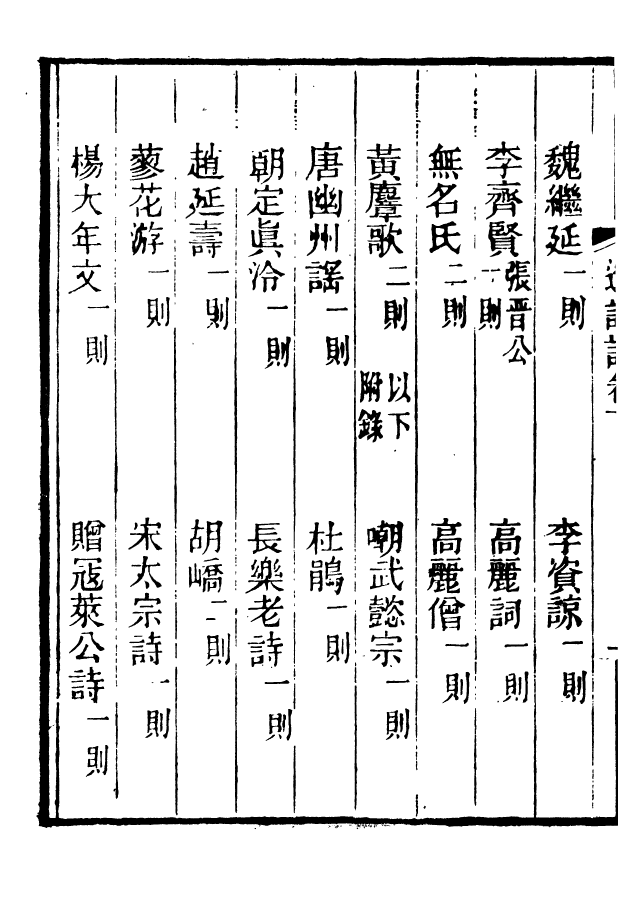 魏繼延一則　李資諒一則
李齊賢張晋公一則　高麗詞一則
無名氏二則　高麗僧一則
黃麞歌二則以下附錄　嘲武懿宗一則
唐幽州謠一則　杜鵑一則
朝定眞一則　長樂老詩一則
趙延壽一則　胡嶠二則
蓼花游一則　宋太宗詩一則
楊大年文一則　贈冦萊公詩一則